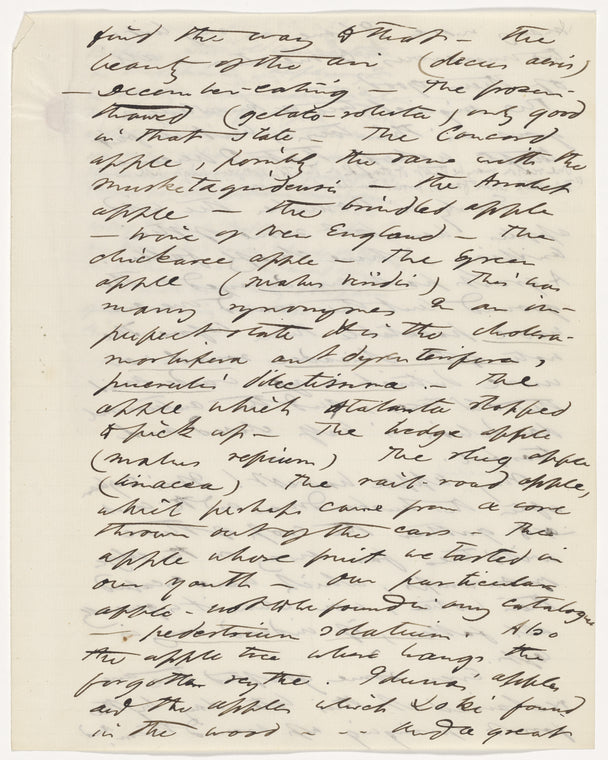 find the way to that — the
beauty of the air (decus aeris)
— December-eating — the frozen-
thawed (gelato-soluta) only good
in that state — The Concord
apple, possibly the same with the
musketaquidensis — the Assabet
apple — the brindled apple
— wine of New England — the
chickaree apple — the green
apple (malus viridis) this has
many synonymes in an im-
perfect state it is the cholera-
morbifera aut dysenterifera,
puerulis dilectissima. — The
apple which Atalanta stopped
to pick up — The hedge apple
(malus sepium) The slug apple
(limacea) The rail-road apple,
which perhaps came from a core
thrown out of the cars — The
apple whose fruit we tasted in
our youth — our particular
apple — not to be found in any catalogue
— pedestrium solatium. Also
the apple tree where hangs the
forgotten scythe. Iduna's apples
and the apples which Loki found
in the wood — — and a great